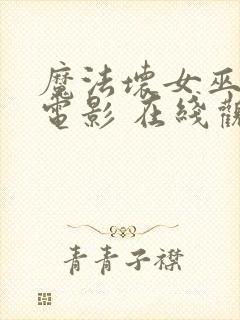 魔法壞女巫
電影 在綫觀
青青子襟